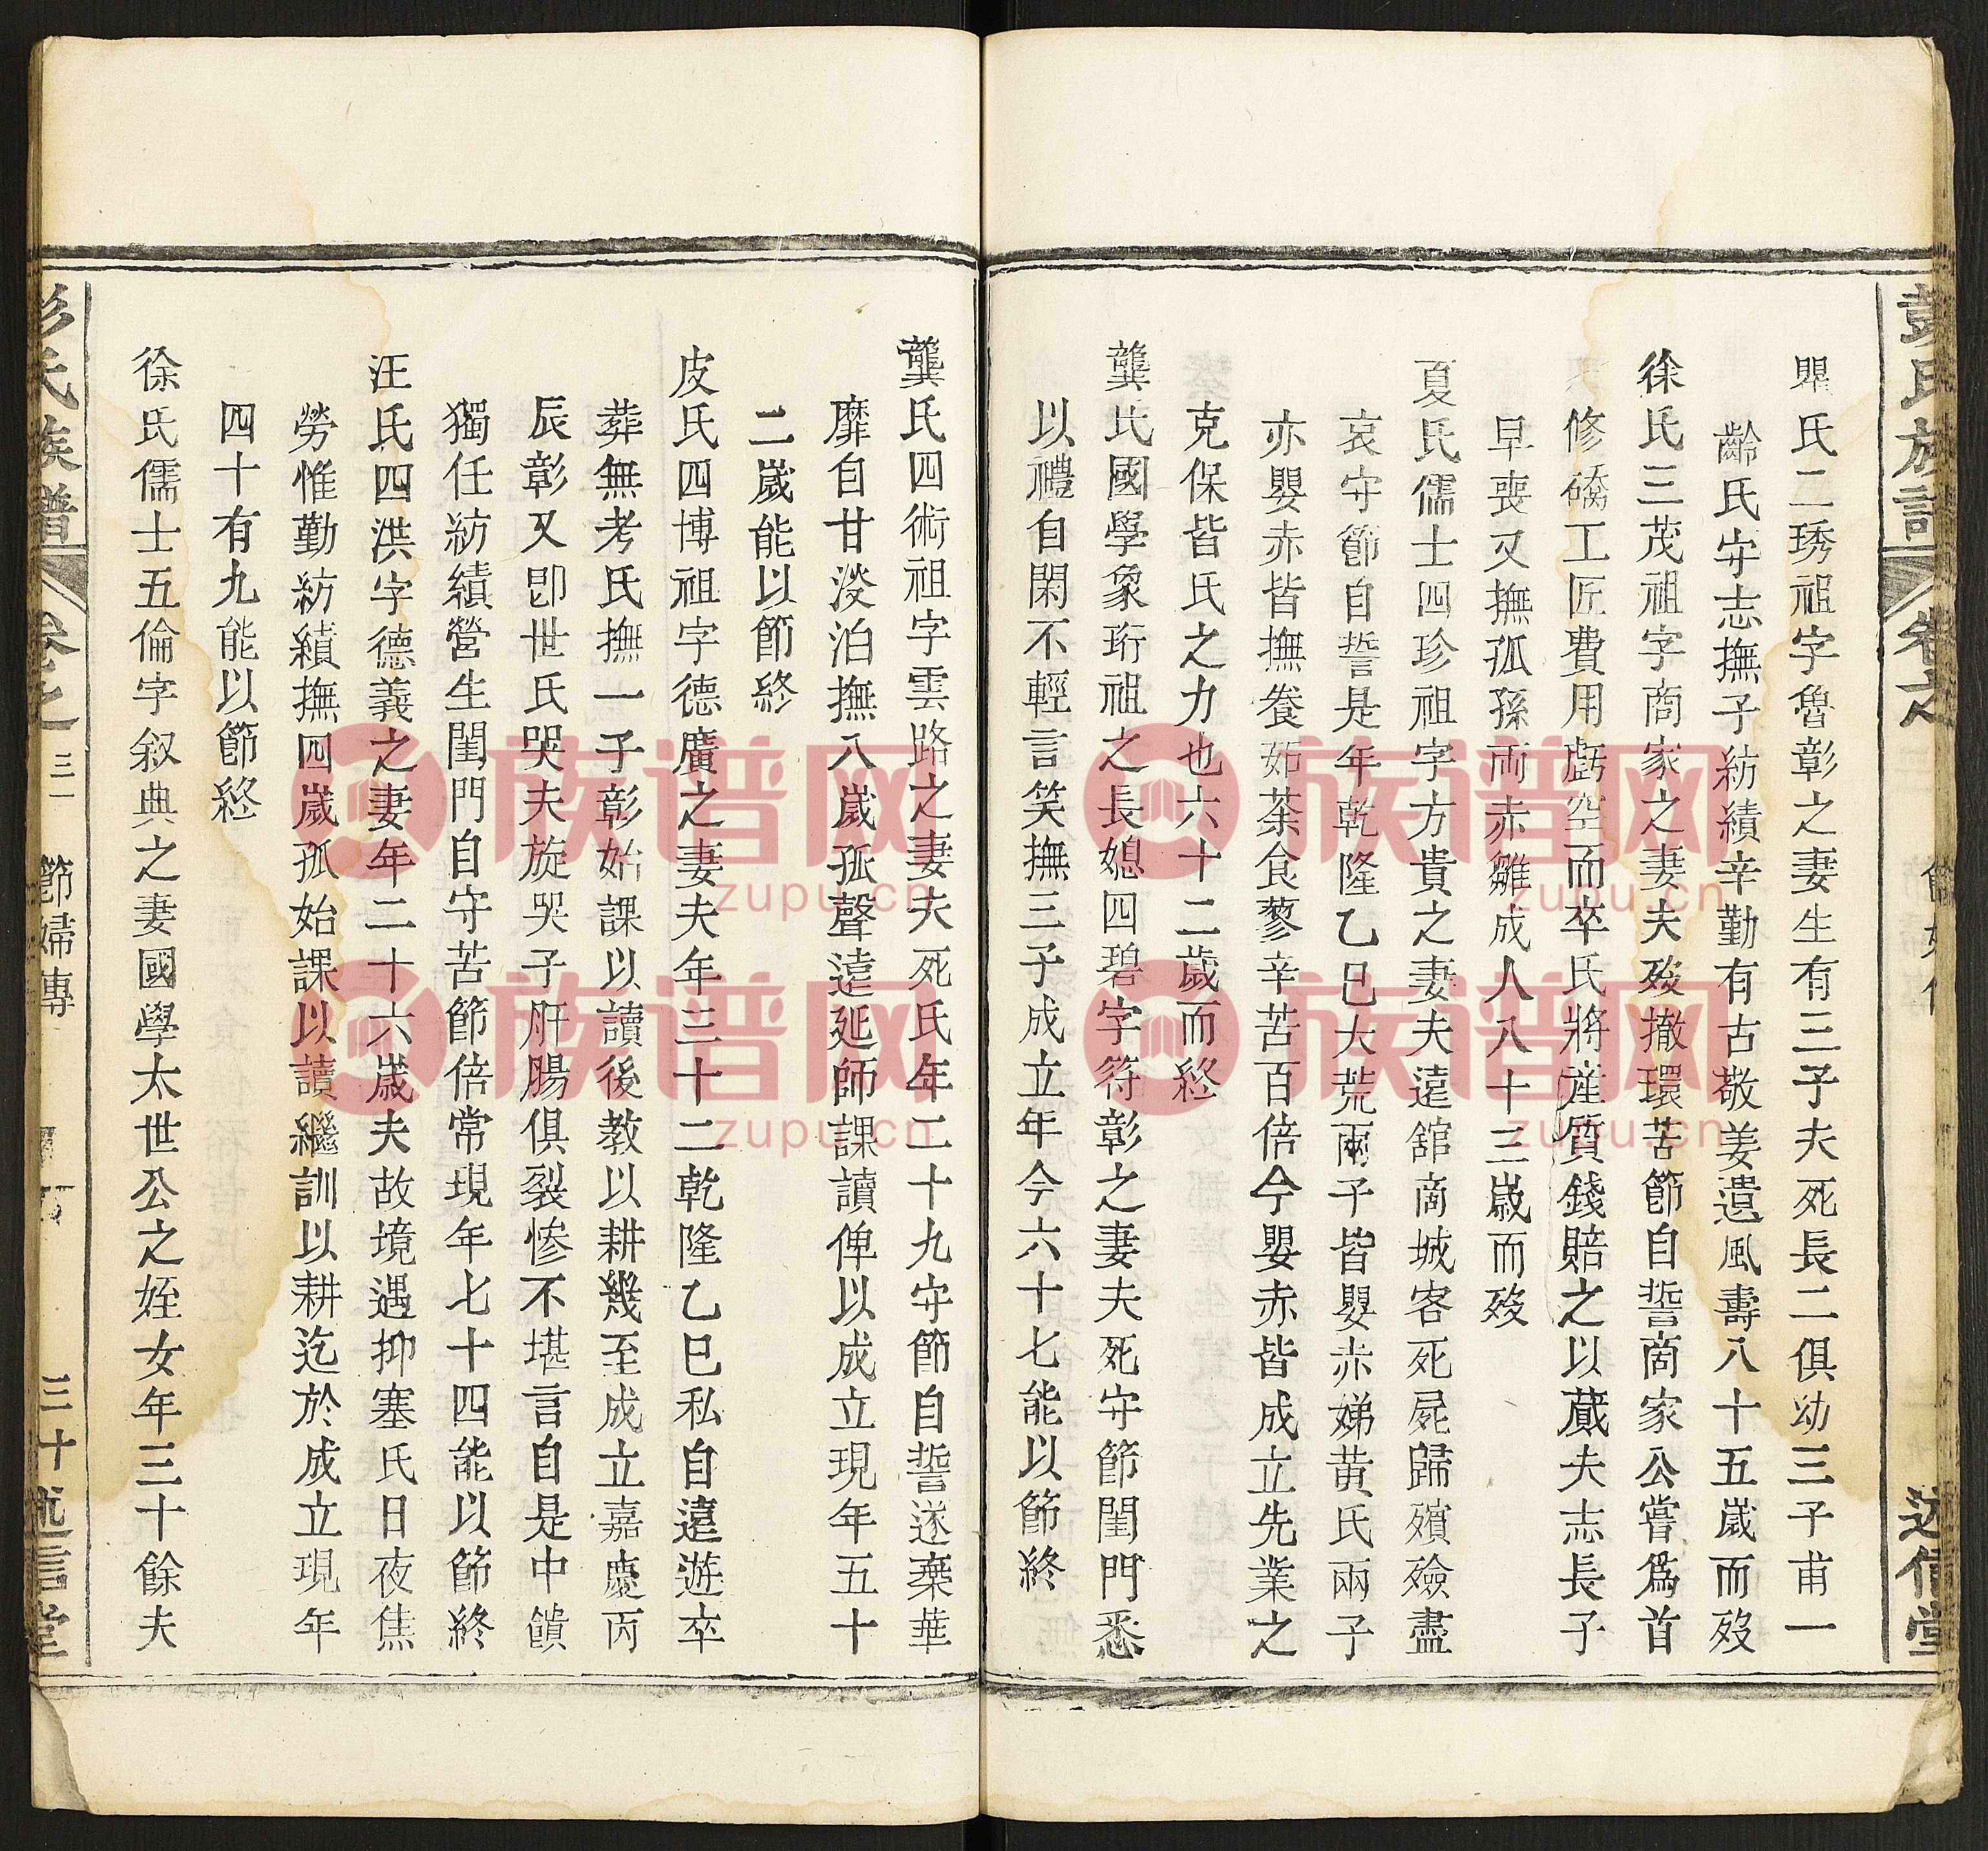 彭氏族譜 卷之 節婦傳 述信堂
氏二琇祖字魯彰之妻生有三子夫死長二俱幼三子甫一
齡氏守志撫子紡績辛勤有古敬姜遺風壽八十五歲而歿
徐氏三茂祖字商家之妻夫歿撤環苦節自誓商家公嘗爲首
修礄工匠費用虧空而卒氏將產質錢賠之以蕆夫志長子
早喪又撫孤孫兩赤雛成人八十三歲而歿
夏氏儒士四珍祖字方貴之妻夫遠舘商城客死屍歸殯殮盡
哀守節自誓是年乾隆乙巳大荒兩子皆嬰赤娣黃氏兩子
亦嬰赤皆撫養茹荼食蓼辛苦百倍今嬰赤皆成立先業之
克保皆氏之力也六十二歲而終
龔氏國學象珩祖之長媳四碧字符彰之妻夫死守節閨門悉
以禮自閑不輕言笑撫三子成立年今六十七能以節終
龔氏四術祖字雲路之妻夫死氏年二十九守節自誓遂棄華
靡自甘淡泊撫八歲孤聲遠延師課讀俾以成立現年五十
二歲能以節終
皮氏四博祖字德廣之妻夫年三十二乾隆乙巳私自遠遊卒
葬無考氏撫一子彰始課以讀後教以耕幾至成立嘉慶丙
辰彰又卽世氏哭夫旋哭子肝腸俱裂慘不堪言自是中饋
獨任紡績營生閨門自守苦節倍常現年七十四能以節終
汪氏四洪字德義之妻年二十六歲夫故境遇抑塞氏日夜焦
勞惟勤紡績撫四歲孤始課以讀繼訓以耕迄於成立現年
四十有九能以節終
徐氏儒士五倫字叙典之妻國學太世公之姪女年三十餘夫
彭氏族譜 卷之 三 節婦傳 三十 述信堂
族谱网
zupu.cn
族谱网
zupu.cn
族谱网
zupu.cn
族谱网
zupu.cn